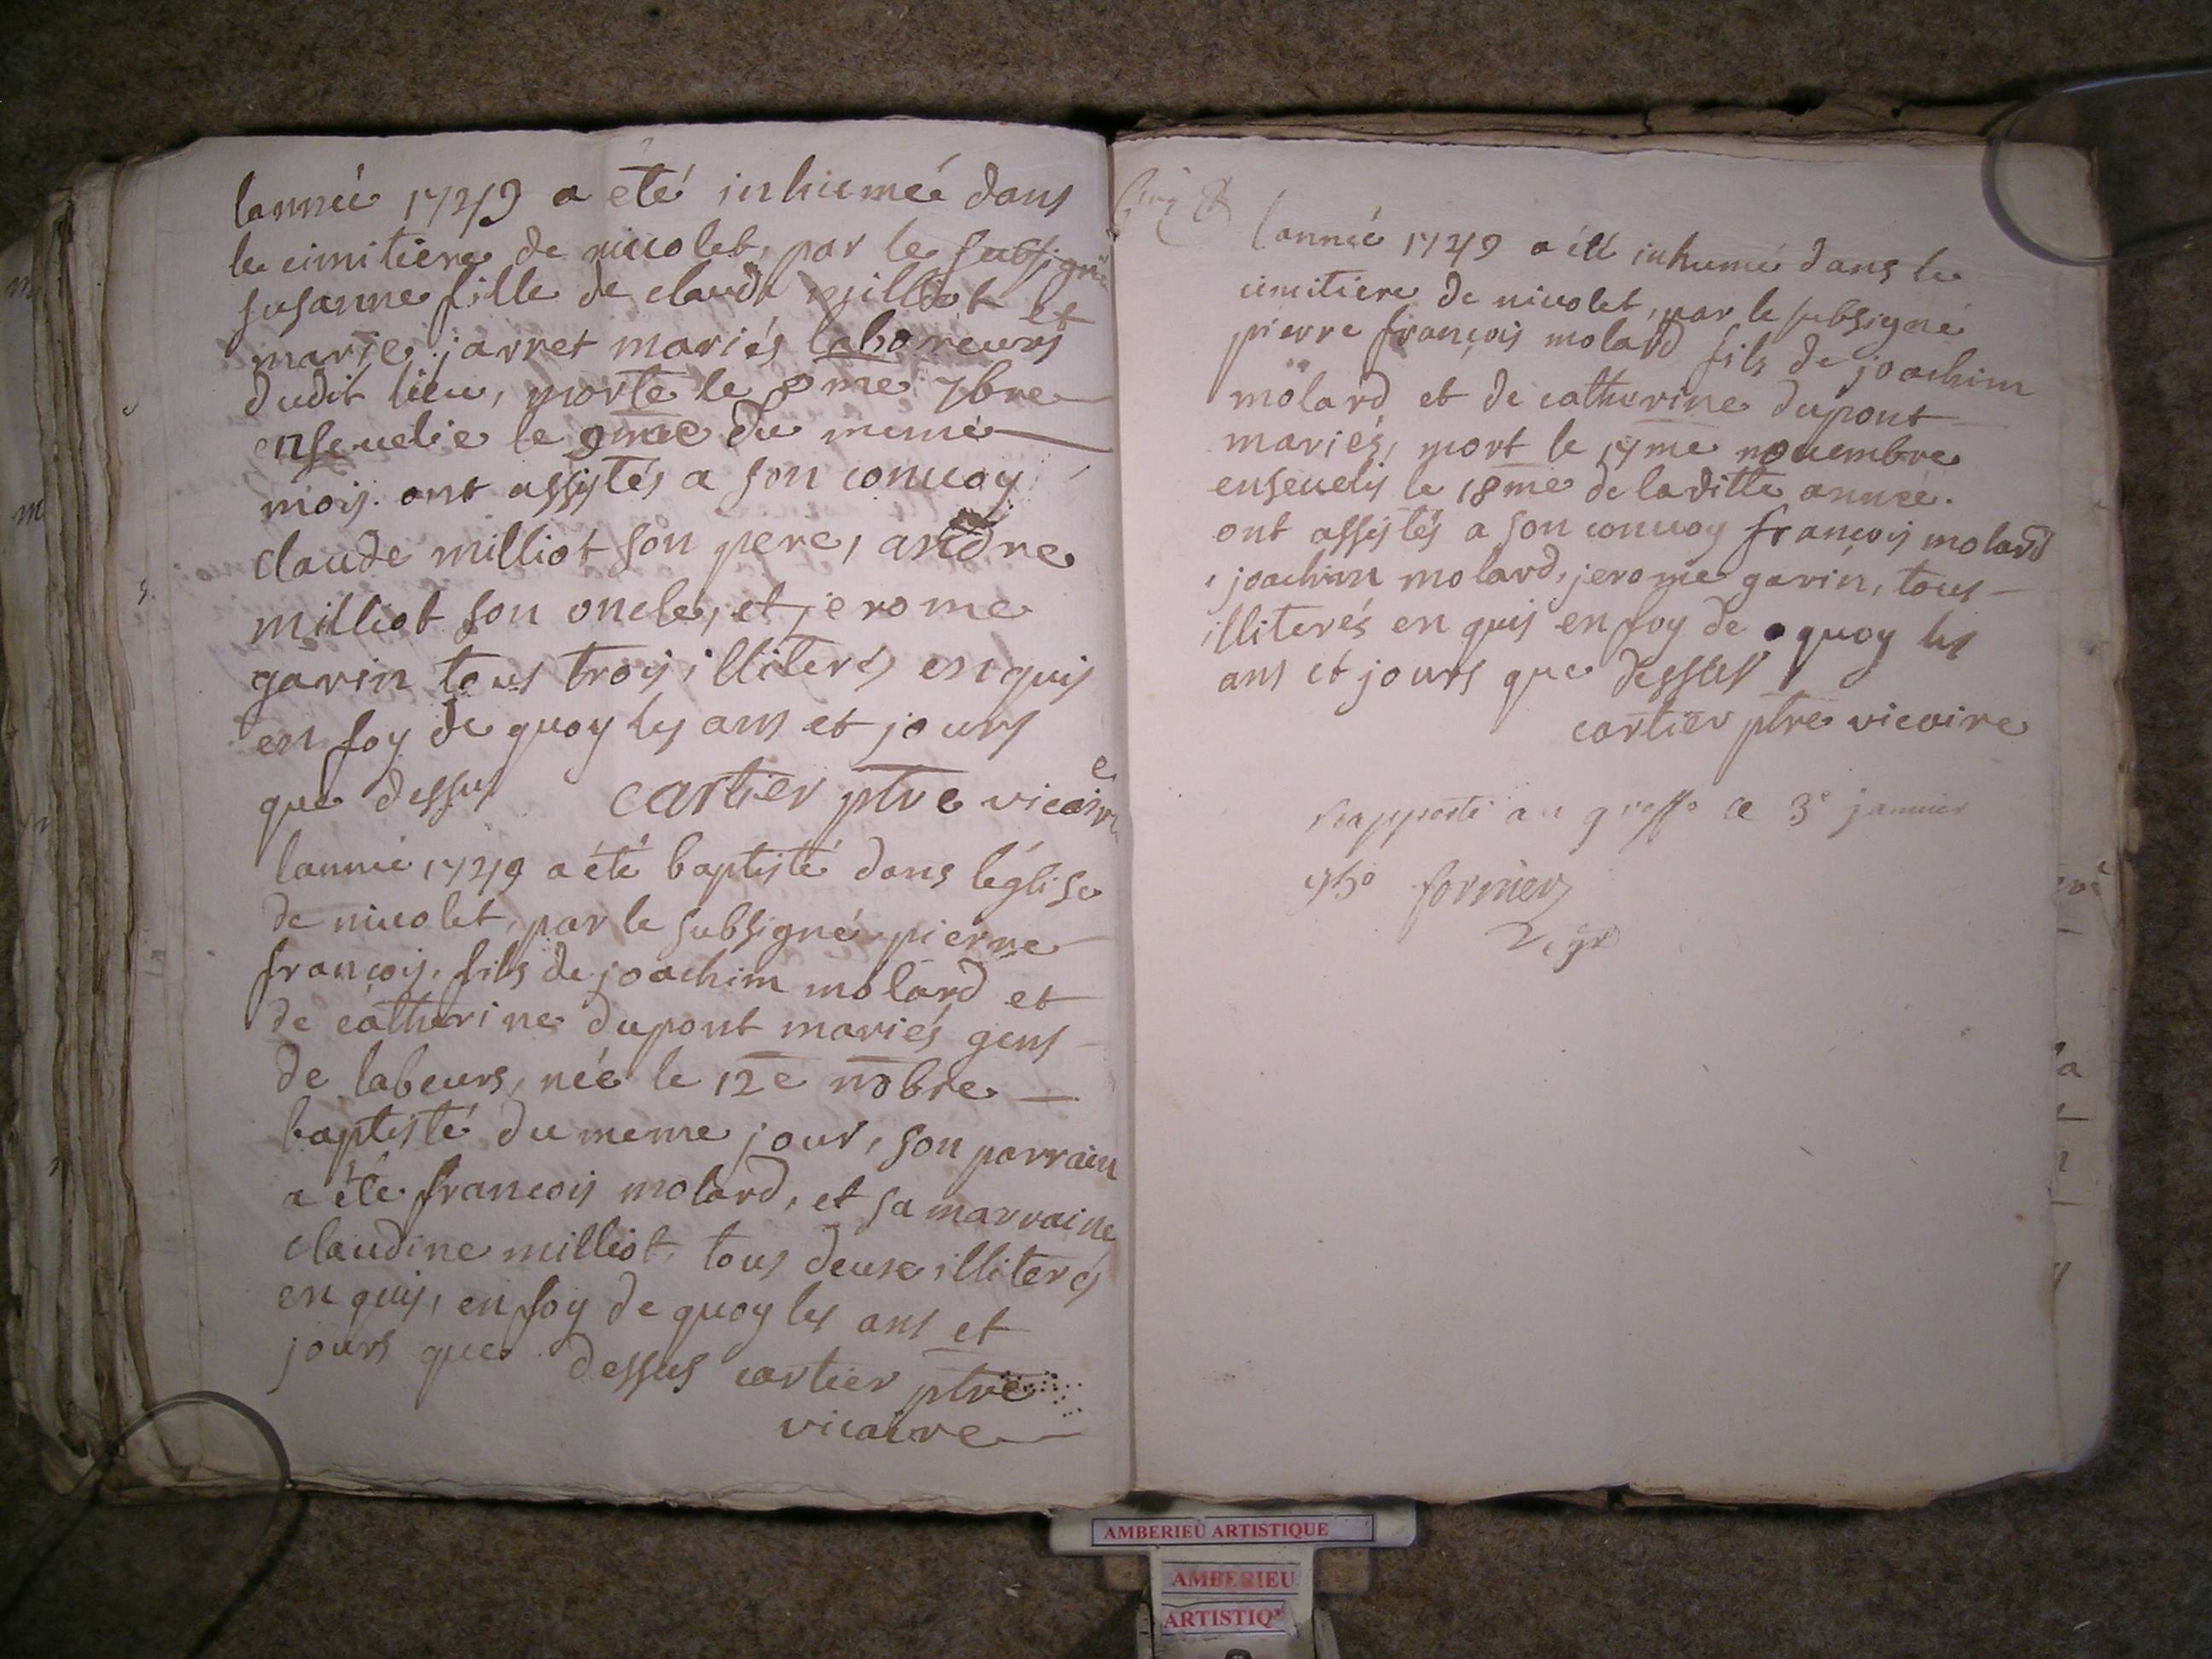 lanneé 1749 a eté inhumeé dans
le cimitiere de nivolet, par le subsigné
susanne fille de claude milliot et
marie jarret mariés laboureurs
dudit lieu, morte le 8me 7bre
ensevelie le 9me du meme
mois. ont assystés a son convoy
claude milliot son pere, andre
milliot son oncle, et jerome
garin tous trois illiterés enquis
en foy de quoy les ans et jours
que dessus cartier ptre vicaire
lanneé 1749 a été baptisté dans léglise
de nivolet, par le subsigné pierre
françois, fils de joachim molard et
de catherine dupont mariés gens
de labeurs, née le 12e nobre
baptisté du meme jour, son parrain
a été francois molard, et sa marraine
claudine milliot, tous deux illiterés
en quis, en foy de quoy les ans et
jours que dessus cartier ptre
vicaire
lanneé 1749 a été inhumé dans le
cimitiere de nivolet, par le subsigné
pierre françois molard fils de joachim
molard et de catherine dupont
mariés, mort le 17me novembre
ensevelis le 18me de laditte anneé.
ont assystés a son convoy françois molard
, joachim molard, jerome garin, tous
illiterés en quis en foy de quoy les
ans et jours que dessus
cartier ptre vicaire
Rapporté au greffe ce 3e janvier
1750
AMBERIEU ARTISTIQUE
AMBERIEU
ARTISTIQ